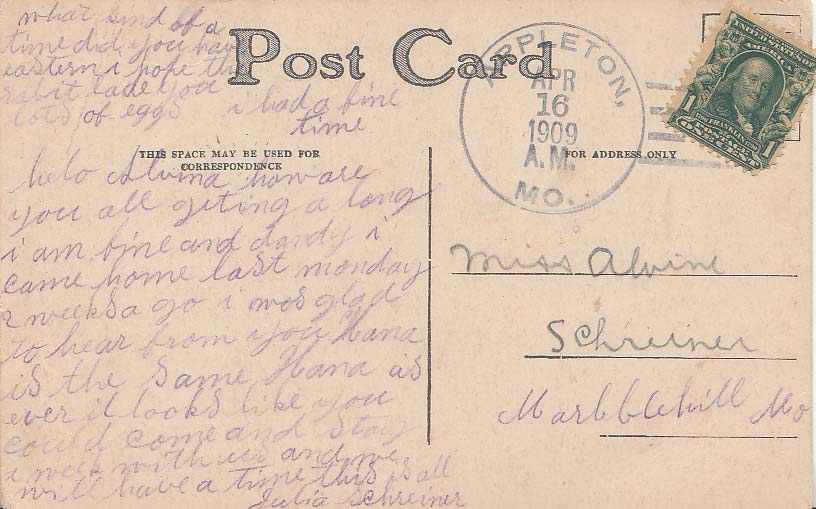 what kind of a
time did you have
eastern i hope the
rabit lade you
lots of eggs i had a fine
time
Post Card
THIS SPACE MAY BE USED FOR
CORRESPONDENCE
helo Alvina how are
you all geting a long
i am fine and dandy i
came home last monday
2 weeks a go i was glad
to hear from you Hana
is the same Hana as
ever it looks like you
could come and stay
a week with us and we
will have a time this is all
Julia Schreiner
APPLETON,
APR
16
1909
A.M.
MO.
UNITED STATES OF
AMERICA
1
FRANKLIN
1
FOR ADDRESS ONLY
Miss Alvine
Schreiner
Marbblehill Mo